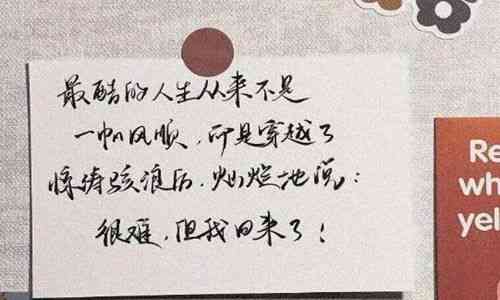 最酷的人生从来不是
一帆风顺，而是穿越了
惊涛骇浪后，灿烂地说：
很难，但我回来了！
Re
wh
yel